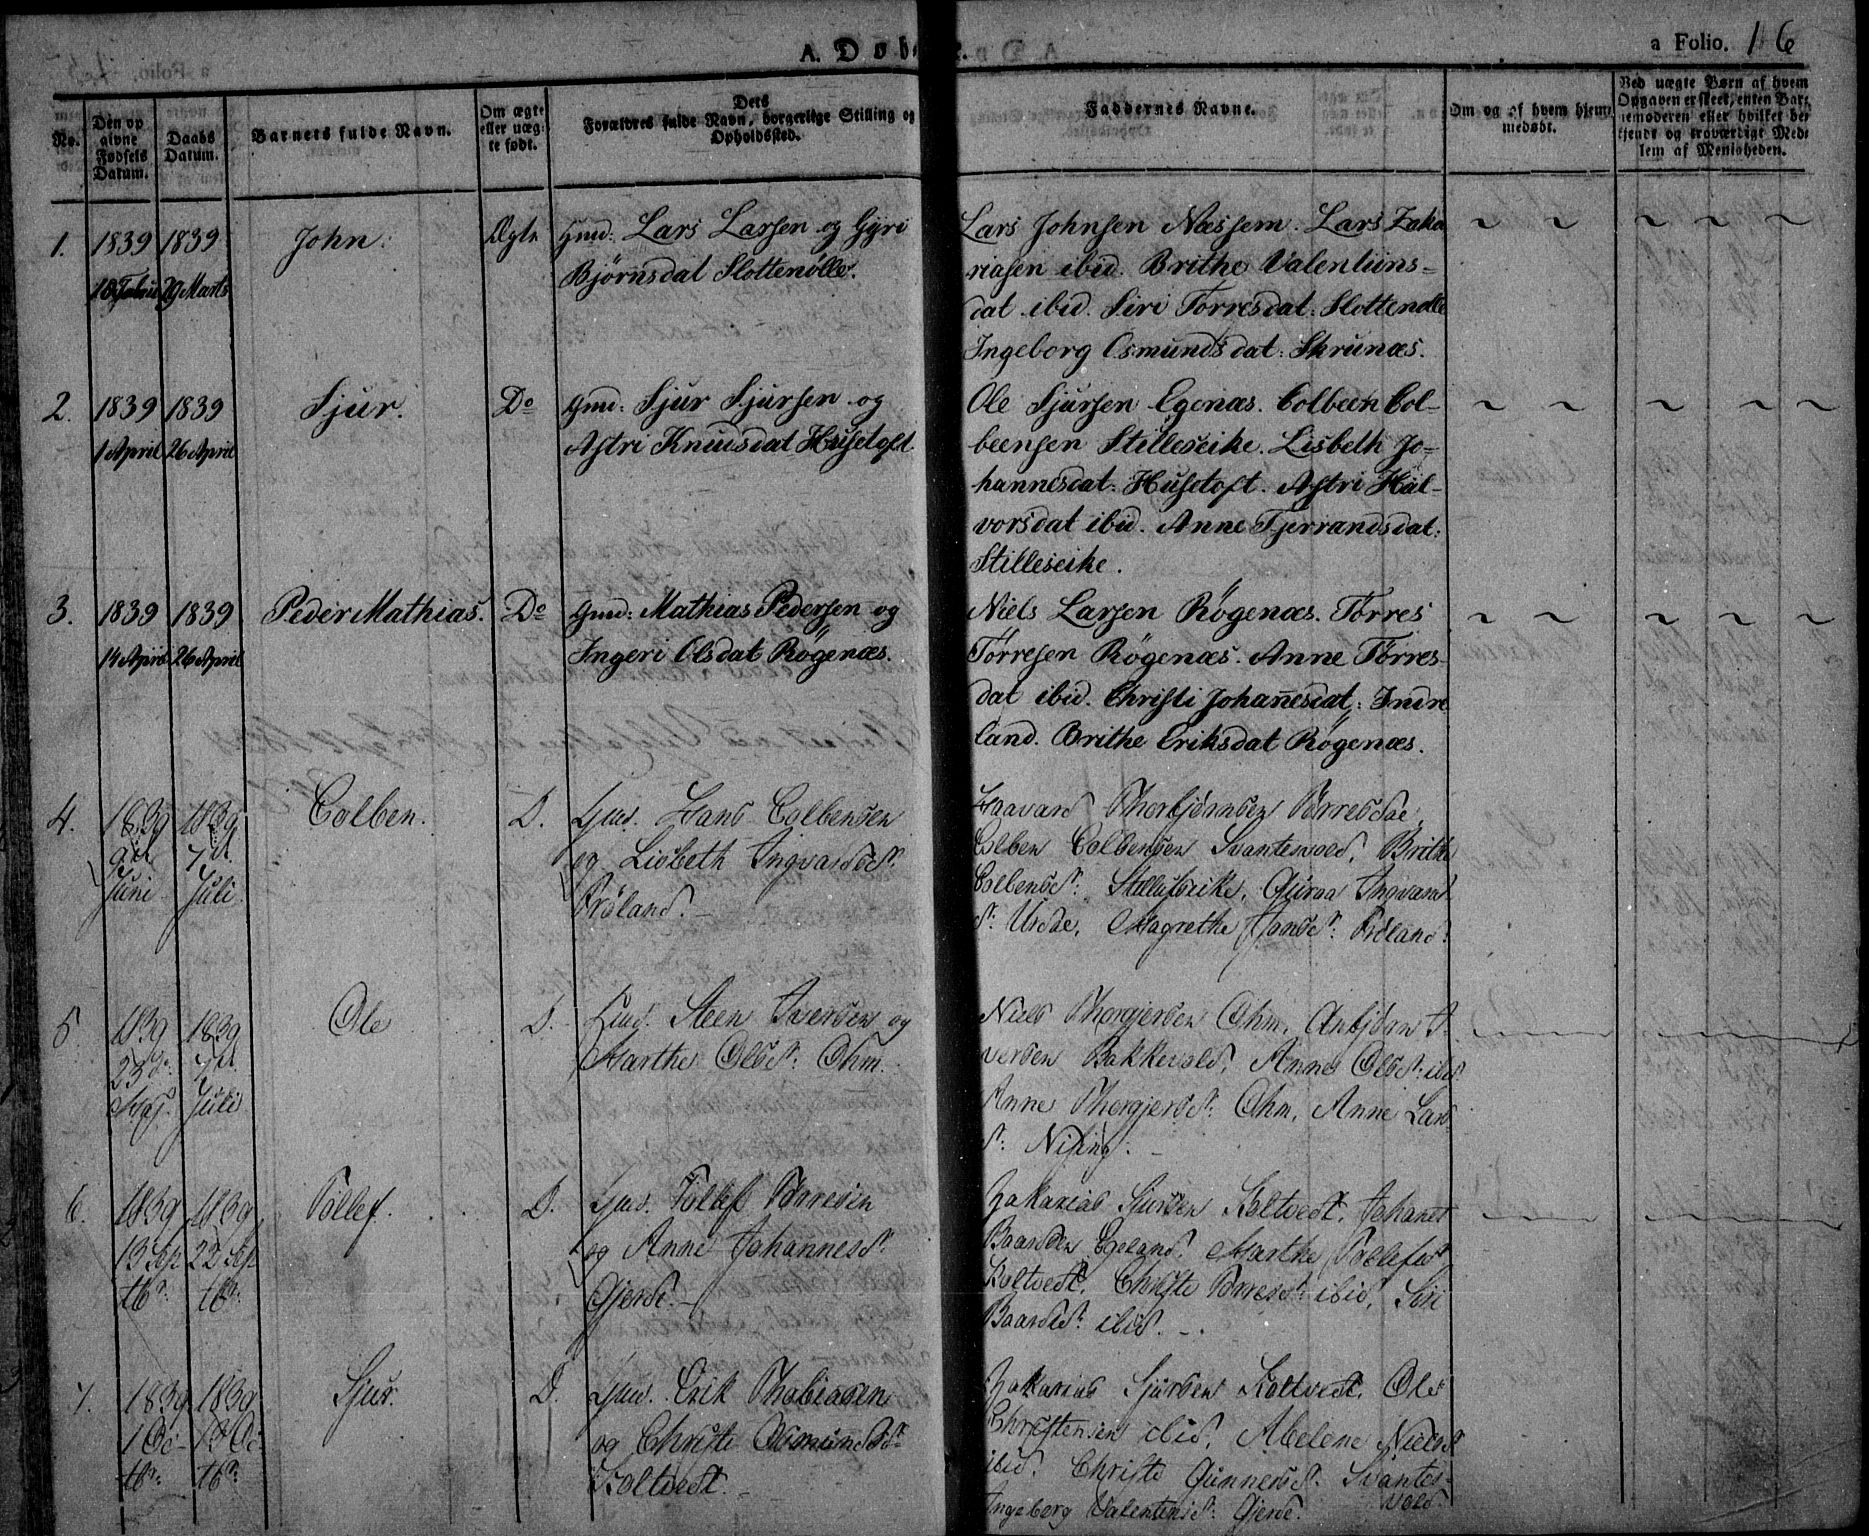 A. Døbe
a Folio. 16
No.
Den opgivne Fødsels Datum.
Daabs Datum.
Barnets fulde Navn.
Om ægte eller uægte født.
Dets Forældres fulde Navn, borgerlige Stilling og Opholdssted.
Faddernes Navne.
Om og af hvem hjemmedøbt.
Ved uægte Børn af hvem Opgaven er skeet, enten Barnemoderen eller hvilket bekjendt og troværdigt Medlem af Menigheden.
1. 1839 1839 John. Ægte Gmd: Lars Larsen og Gyri
18 Febru 29 Marts Bjørnsdat Slottenølle.
Lars Johnsen Næssem. Lars Zaka
riasen ibid. Brithe Valentiins=
dat ibid. Siri Torresdat: Slottenølle
Ingeborg Osmundsdat: Skrunæs.
2. 1839 1839 Sjur. Do Gmd: Sjur Sjursen og
1 April 26 April Astri Knudsdat Husetoft
Ole Sjursen Egenæs. Colbeen Col-
beensen Stilleseike. Lisbeth Jo=
hannesdat: Husetoft. Astri Hal-
vorsdat ibid. Anne Tjerrandsdat:
Stilleseike.
3. 1839 1839 Peder Mathias. Do Gmd: Mathias Pedersen og
14 April 26 April Ingeri Olsdat Røgenæs.
Niels Larsen Røgenæs. Tørres
Tørresen Røgenæs. Anne Tørres-
dat ibid. Christi Johañesdat: Indre
land. Brithe Eriksdat Røgenæs.
4. 1839 1839 Colben. D. Gmd. Hans Colbensen
9d 7d og Lisbeth Ingvardsd.
Juni Juli Frøland.
Haavard Thorbjørnsen
Colben Colbensen Svantesvold, Brithe
Colbensd: Stilleseike, Guroa Ingvard
d: Urdde, Magrethe Hansd:
5. 1839 1839 Ole D. Gmd. Steen Iversen og
23d 7d Marthe Olsd: Ohm.
Maj. Juli
Niels Thorgjersen Ohm, Anbjørn I=
versen Bakkevold, Anne Olsd: ibd.
Anne Thorgjersd: Ohm, Anne Lars
d:
6. 1839 1839 Tollef. D. Gmd. Tollef Torresen
13 Sep 22 Sep og Anne Johannesd:
tbr: tbr: Gjerde.
Zakarias Sjursen Koltvedt, Johanes
Baardsen Egeland, Marthe Tollefsd
Koltvedt, Christe Torresd: ibid, Siri
Baardsd: ibid.
7. 1839 1839 Sjur. D. Gmd. Erik Thobiasen
1 Oc- 13 Oc- og Christi Osmundsd:
tbr: tbr: Koltvedt.
Zakarias Sjursen Koltvedt, Ole
Christensen ibid, Abelene Nielsd
ibid. Christe Gunnersd: Svantes-
vold
Ingeborg Valentinsd: Gjerde.